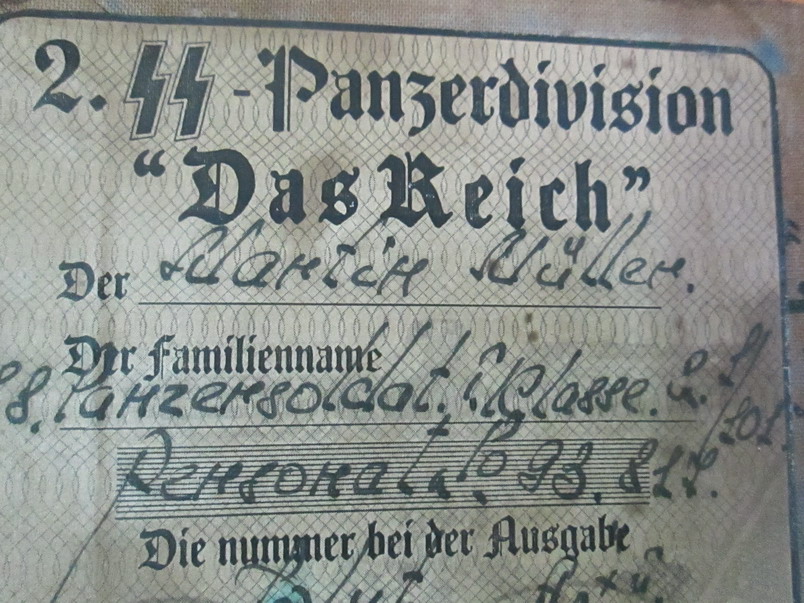 2. SS-Panzerdivision
"Das Reich"
Der Martin Müller.
Der Familienname
Panzersoldat. Klasse.
Personal. No 93.817.
Die nummer bei der Ausgabe